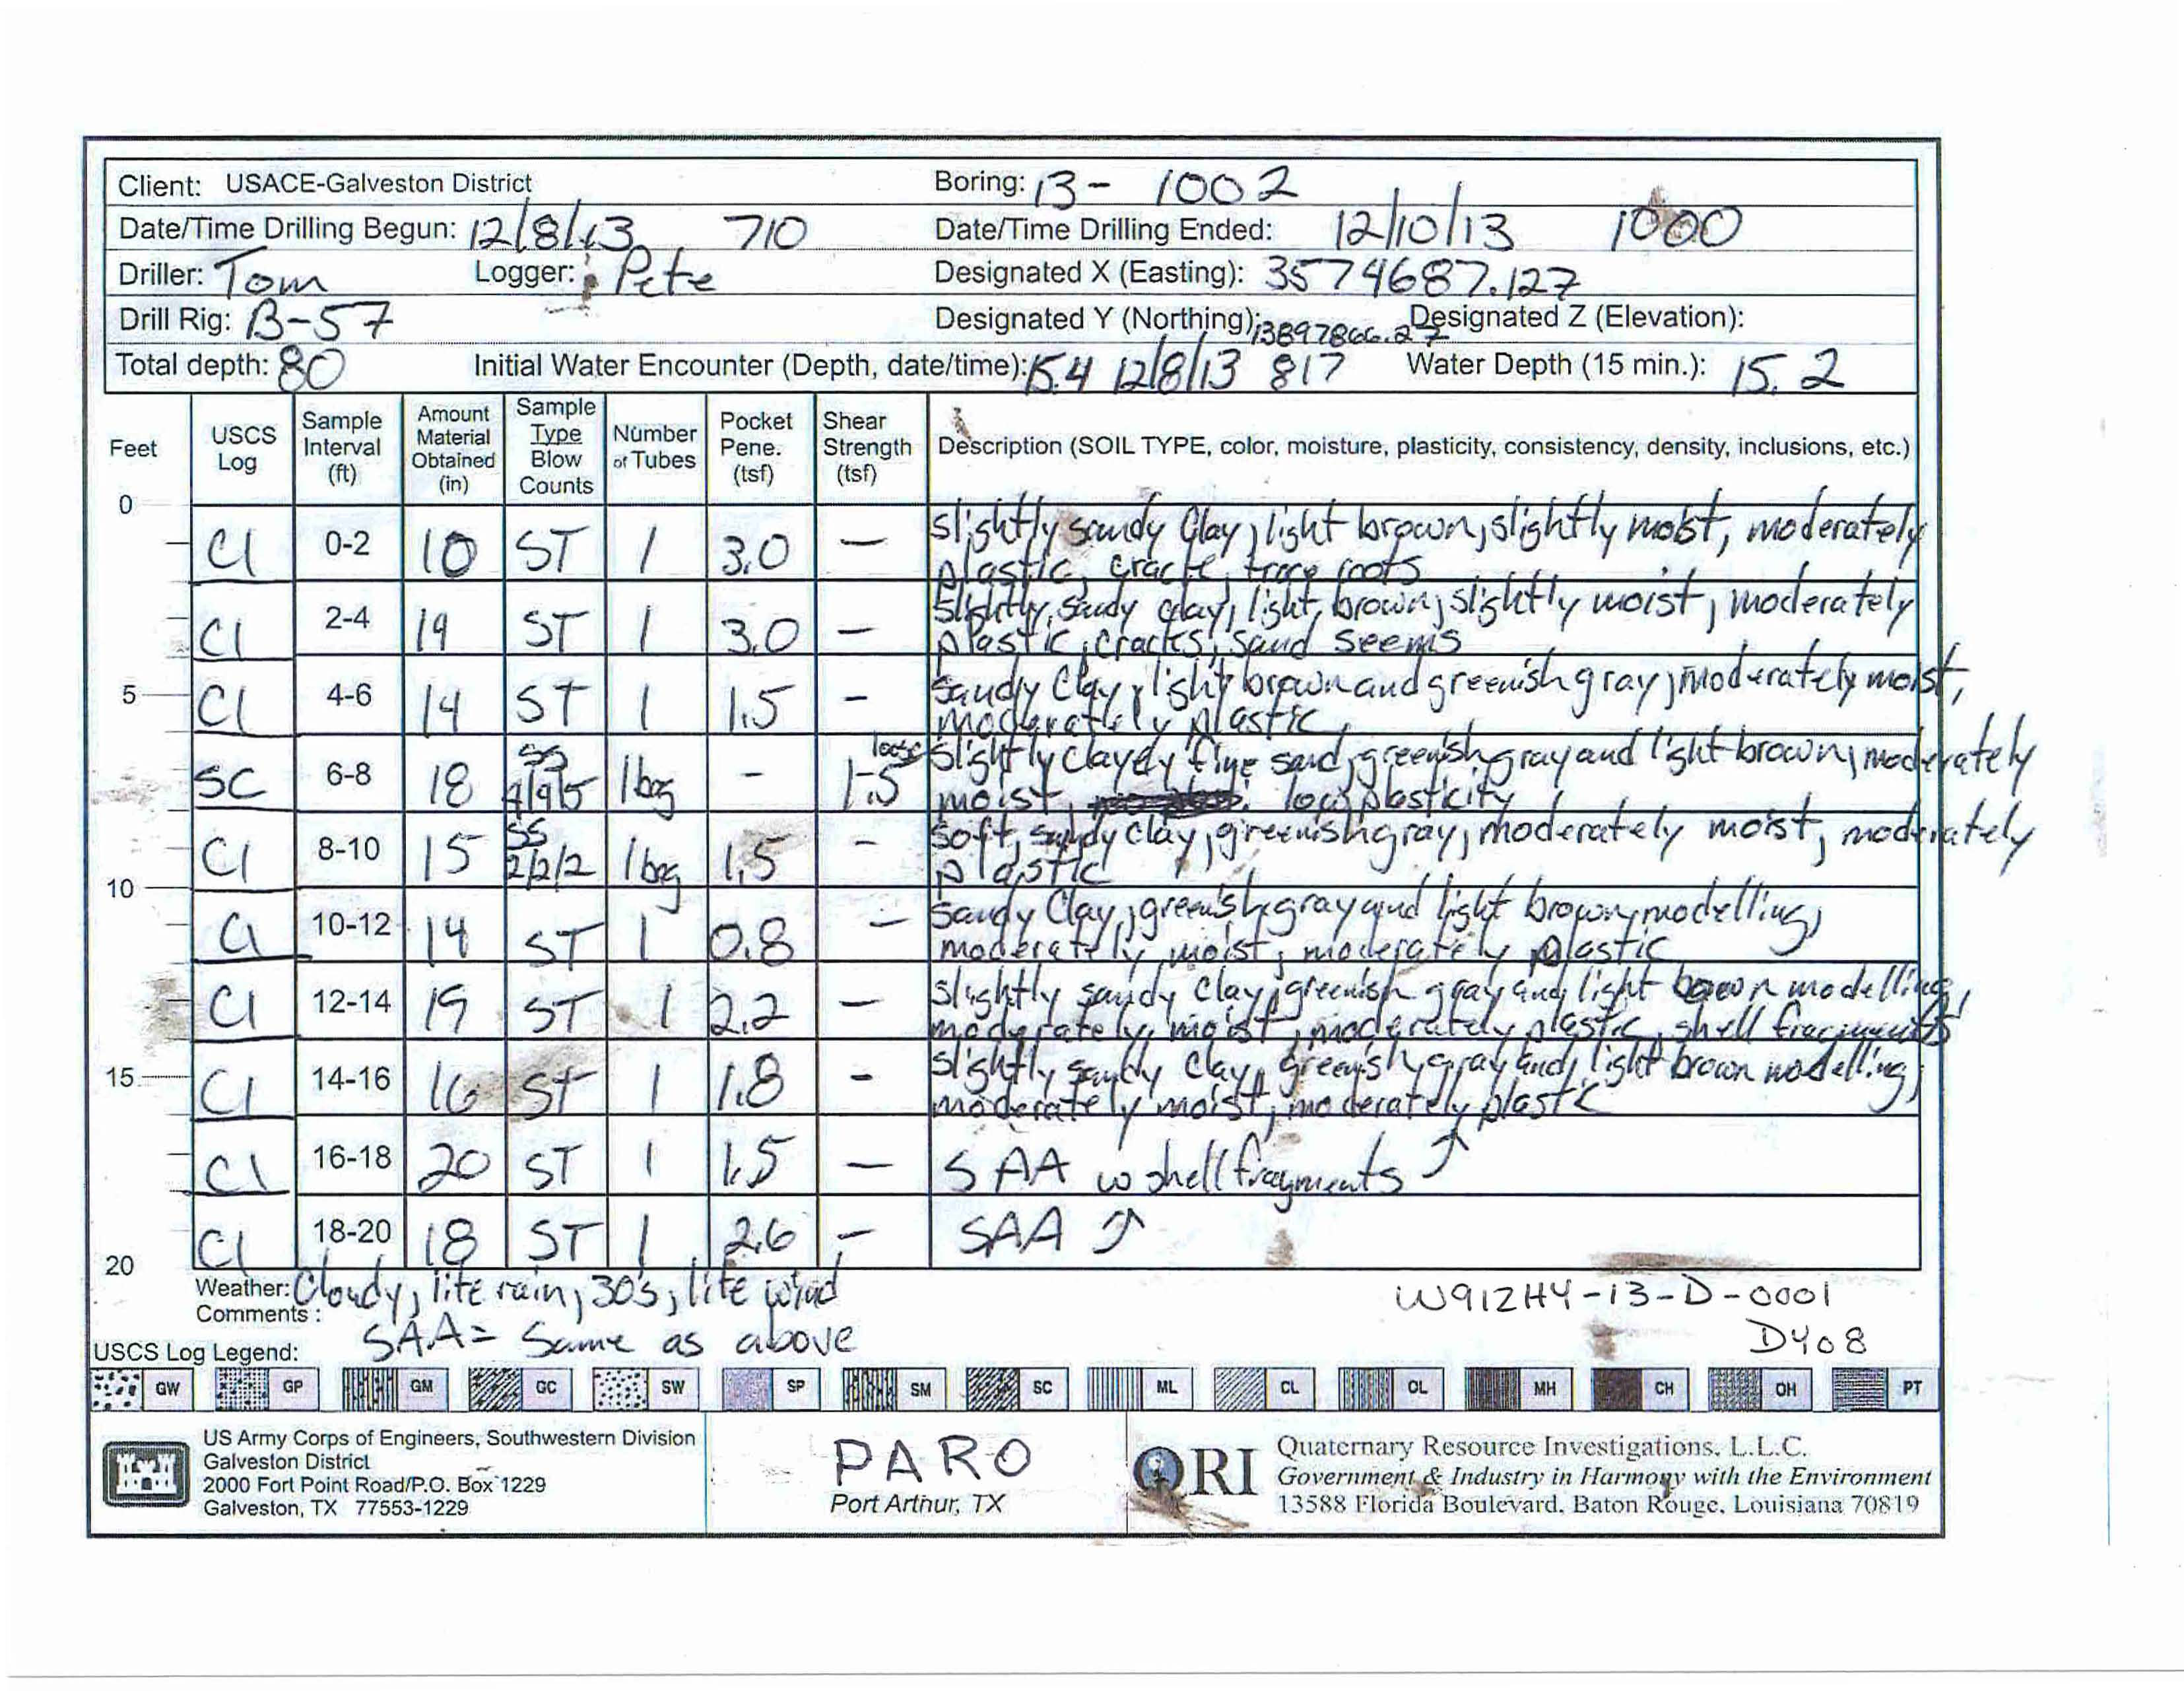 Client: USACE-Galveston District Boring: 13- 1002
Date/Time Drilling Begun: 12/8/13 710 Date/Time Drilling Ended: 12/10/13 1000
Driller: Tom Logger: Pete Designated X (Easting): 3574687.127
Drill Rig: B-57 Designated Y (Northing): 13897866.27 Designated Z (Elevation):
Total depth: 80 Initial Water Encounter (Depth, date/time): 15.4 12/8/13 817 Water Depth (15 min.): 15.2
Feet USCS Log Sample Interval (ft) Amount Material Obtained (in) Sample Type Blow Counts Number of Tubes Pocket Pene. (tsf) Shear Strength (tsf) Description (SOIL TYPE, color, moisture, plasticity, consistency, density, inclusions, etc.)
0
Cl 0-2 10 ST 1 3.0 — slightly sandy Clay, light brown, slightly moist, moderately
plastic, trace roots
Cl 2-4 19 ST 1 3.0 — slightly sandy clay, light brown, slightly moist, moderately
plastic, cracks, sand seems
5 Cl 4-6 14 ST 1 1.5 - sandy Clay, light brown and greenish gray, moderately moist,
moderately plastic
SC 6-8 18 SS 1 bag - 1.5 loose slightly clayey fine sand, greenish gray and light brown, moderately
moist, low plasticity
Cl 8-10 15 SS 2/2/2 1 bag 1.5 - soft, sandy clay, greenish gray, moderately moist, moderately
plastic
10
Cl 10-12 14 ST 1 0.8 — sandy Clay, greenish gray and light brown modelling,
moderately moist, moderately plastic
Cl 12-14 19 ST 1 2.2 — slightly sandy clay, greenish gray and light brown modelling,
moderately moist, moderately plastic, shell fragments
15 Cl 14-16 16 ST 1 1.8 - slightly sandy clay, greenish gray and light brown modelling,
moderately moist, moderately plastic
Cl 16-18 20 ST 1 1.5 — SAA w shell fragments ↑
Cl 18-20 18 ST 1 2.6 — SAA ↑
20
Weather: Cloudy, lite rain, 30's, lite wind W912HY-13-D-0001
Comments: SAA = Same as above DY08
USCS Log Legend:
GW GP GM GC SW SP SM SC ML CL OL MH CH OH PT
US Army Corps of Engineers, Southwestern Division
Galveston District
2000 Fort Point Road/P.O. Box 1229
Galveston, TX 77553-1229
PARO
Port Arthur, TX
QRI
Quaternary Resource Investigations, L.L.C.
Government & Industry in Harmony with the Environment
13588 Florida Boulevard, Baton Rouge, Louisiana 70819